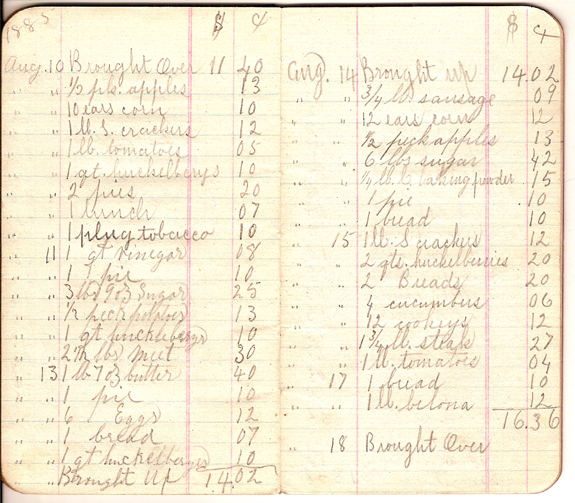 1885
$ ¢
Aug. 10 Brought Over 11 40
" " ½ pk. apples 13
" " 10 ears corn 10
" " 1 lb. S. crackers 12
" " 1 lb. tomatoes 05
" " 1 qt. huckelberys 10
" " 2 pies 20
" " 1 lunch 07
" " 1 plug tobacco 10
" 11 1 qt vinegar 08
" " 1 pie 10
" " 3 lbs 9 oz Sugar 25
" " ½ peck potatoes 13
" " 1 qt huckleberys 10
" " lbs Meet 30
" 13 1 lb 7 oz butter 40
" " 1 pie 10
" " 6 Eggs 12
" " 1 bread 07
" " 1 qt huckelberys 10
Brought Up 14.02
$ ¢
Aug. 14 Brought up 14.02
" " 3/4 lb. sausage 09
" " 12 ears corn 12
" " ½ peck apples 13
" " 6 lbs sugar 42
" " ¼ lb. C. baking powder 15
" " 1 pie 10
" " 1 bread 10
" 15 1 lb. S crackers 12
" " 2 qts. huckelberries 20
" " 2 Breads 20
" " 4 cucumbers 06
" " 12 cookeys 12
" " 1 3/4 lb. steak 27
" " 1 lb. tomatoes 04
" 17 1 bread 10
" " 1 lb. belona 12
16.36
" 18 Brought Over